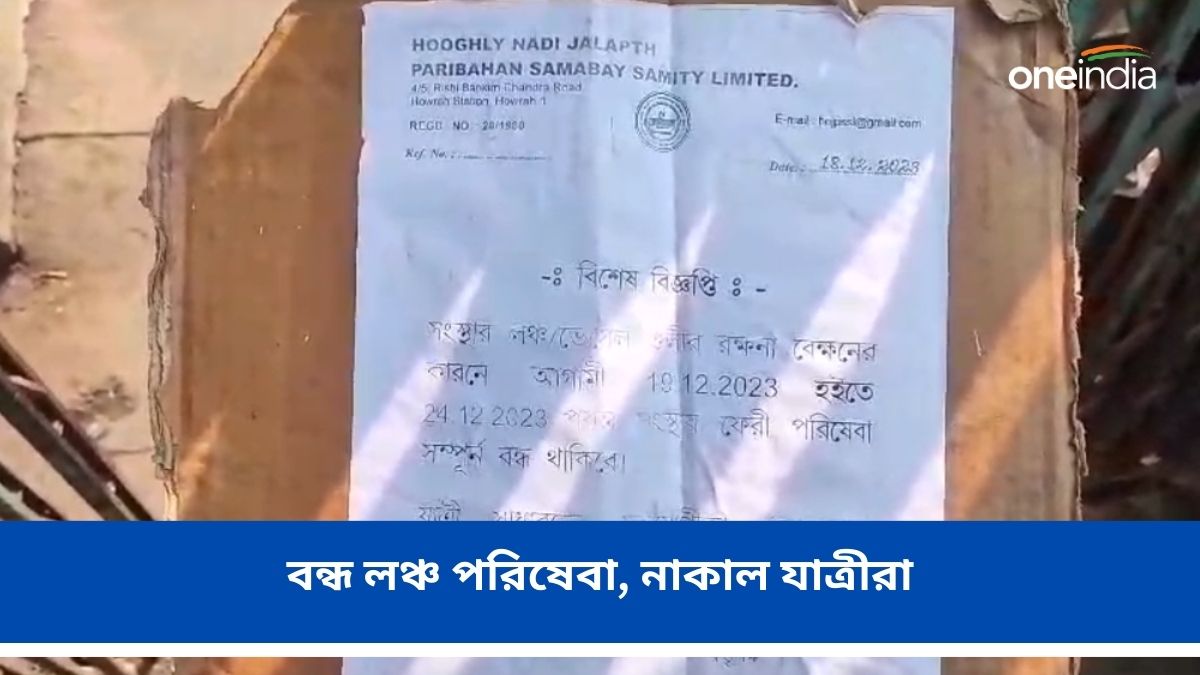 HOOGHLY NADI JALAPTH
PARIBAHAN SAMABAY SAMITY LIMITED.
4/5, Rishi Bankim Chandra Road
Howrah Station, Howrah-1
REGD. NO.: 28/1980
E-mail : hnjpssl@gmail.com
Ref. No. :
Date : 18.12.2023
oneindia
-ঃ বিশেষ বিজ্ঞপ্তি ঃ -
সংস্থার লঞ্চ/ভেসেল গুলীর রক্ষনা বেক্ষনের
কারনে আগামী 19.12.2023 হইতে
24.12.2023 পর্যন্ত সংস্থার ফেরী পরিষেবা
সম্পূর্ন বন্ধ থাকিবে।
যাত্রী
বন্ধ লঞ্চ পরিষেবা, নাকাল যাত্রীরা